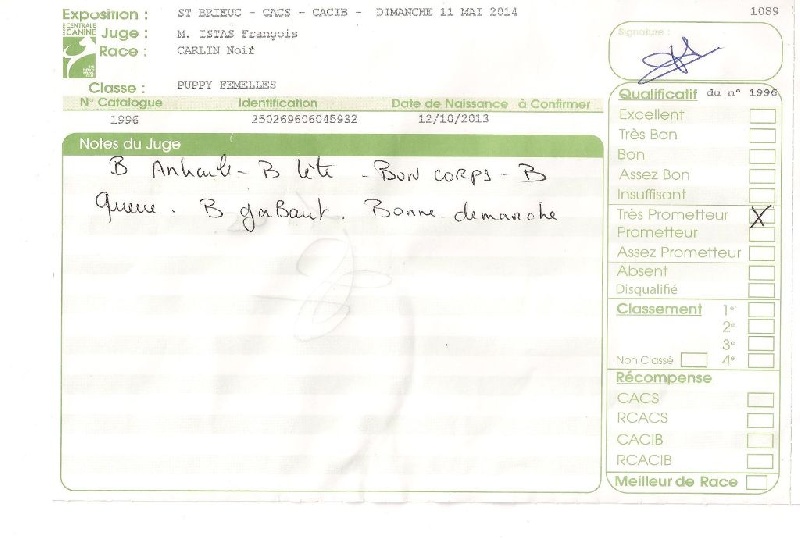 Exposition : ST BRIEUC - CACS - CACIB - DIMANCHE 11 MAI 2014
1089
CENTRALE CANINE
Juge : M. ISTAS François
Race : CARLIN Noir
Classe : PUPPY FEMELLES
N° Catalogue Identification Date de Naissance à Confirmer
1996 250269606045932 12/10/2013
Notes du Juge
B - B tête - BON CORPS - B
queue . B gaBarit . Bonne demarche
Signature :
Qualificatif du n° 1996
Excellent
Très Bon
Bon
Assez Bon
Insuffisant
Très Prometteur X
Prometteur
Assez Prometteur
Absent
Disqualifié
Classement 1°
2°
3°
Non Classé 4°
Récompense
CACS
RCACS
CACIB
RCACIB
Meilleur de Race